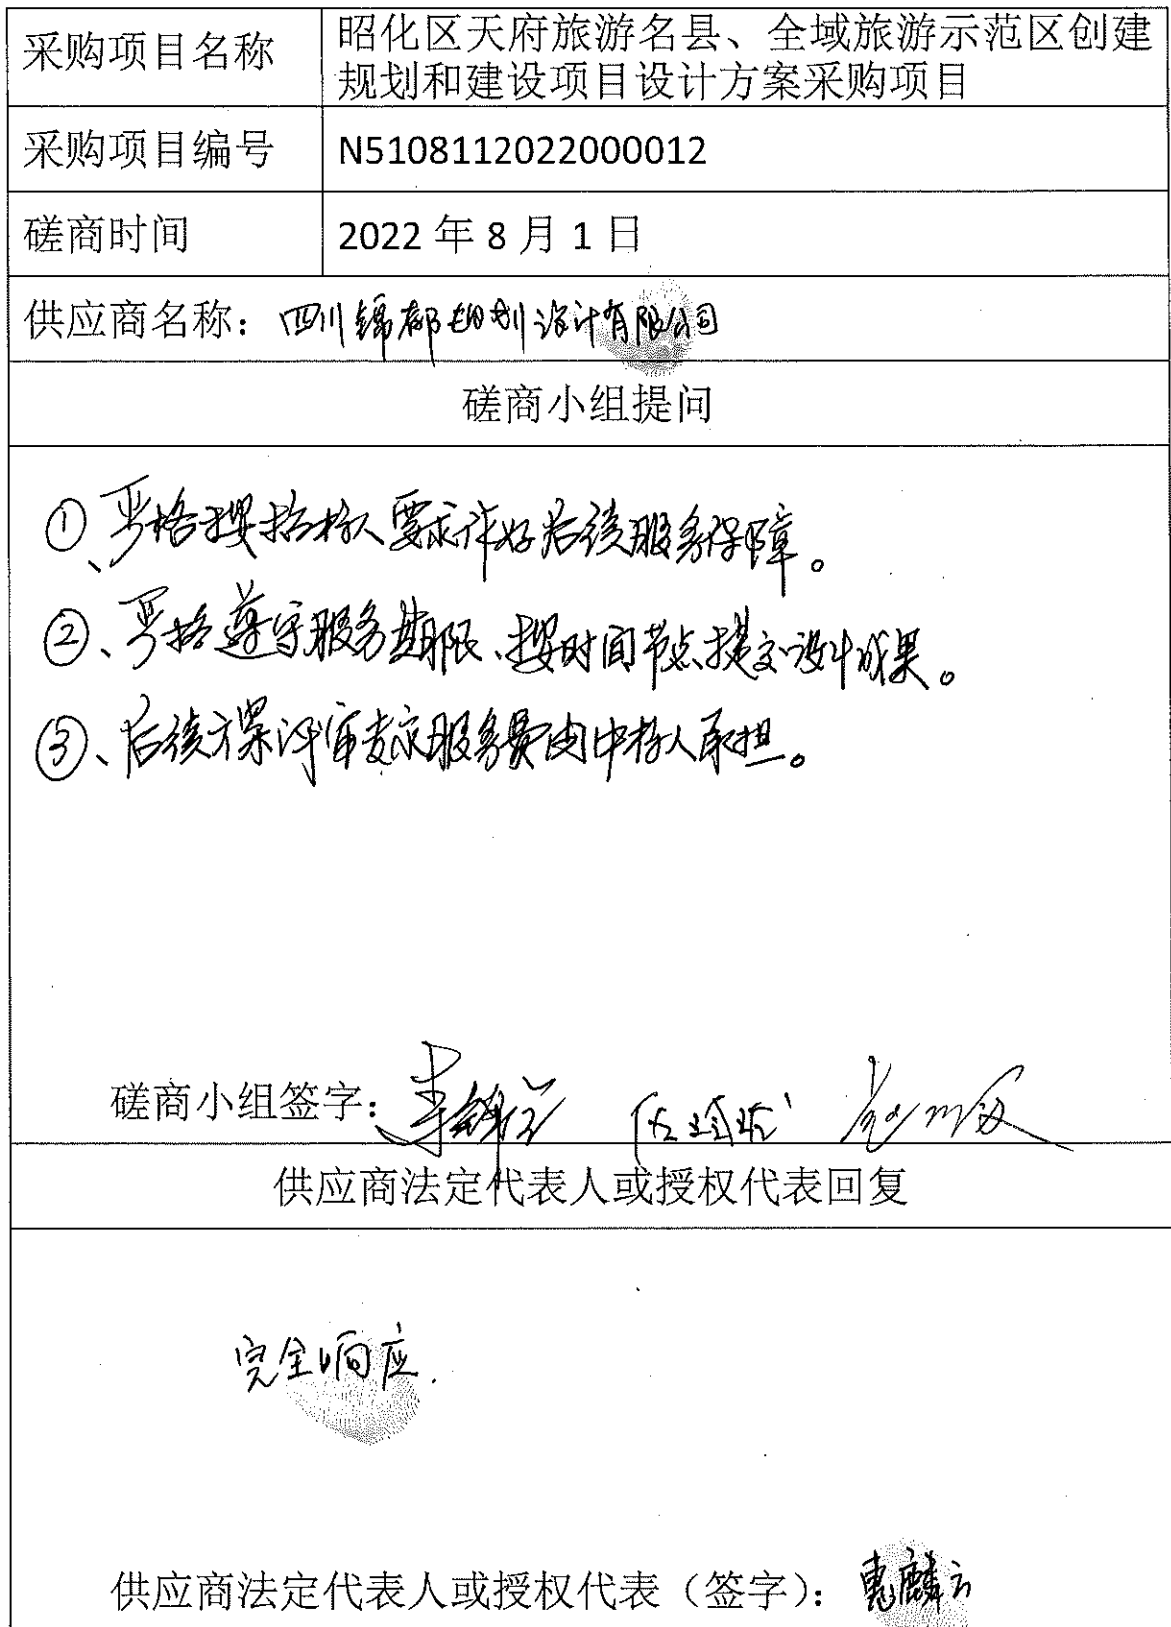 采购项目名称
昭化区天府旅游名县、全域旅游示范区创建
规划和建设项目设计方案采购项目
采购项目编号
N5108112022000012
磋商时间
2022 年 8 月 1 日
供应商名称：四川锦都规划设计有限公司
磋商小组提问
①、严格按招标人要求作好后续服务保障。
②、严格遵守服务期限、按时间节点提交设计成果。
③、后续方案评审专家服务费由中标人承担。
磋商小组签字：
供应商法定代表人或授权代表回复
完全响应.
供应商法定代表人或授权代表（签字）：惠麟云